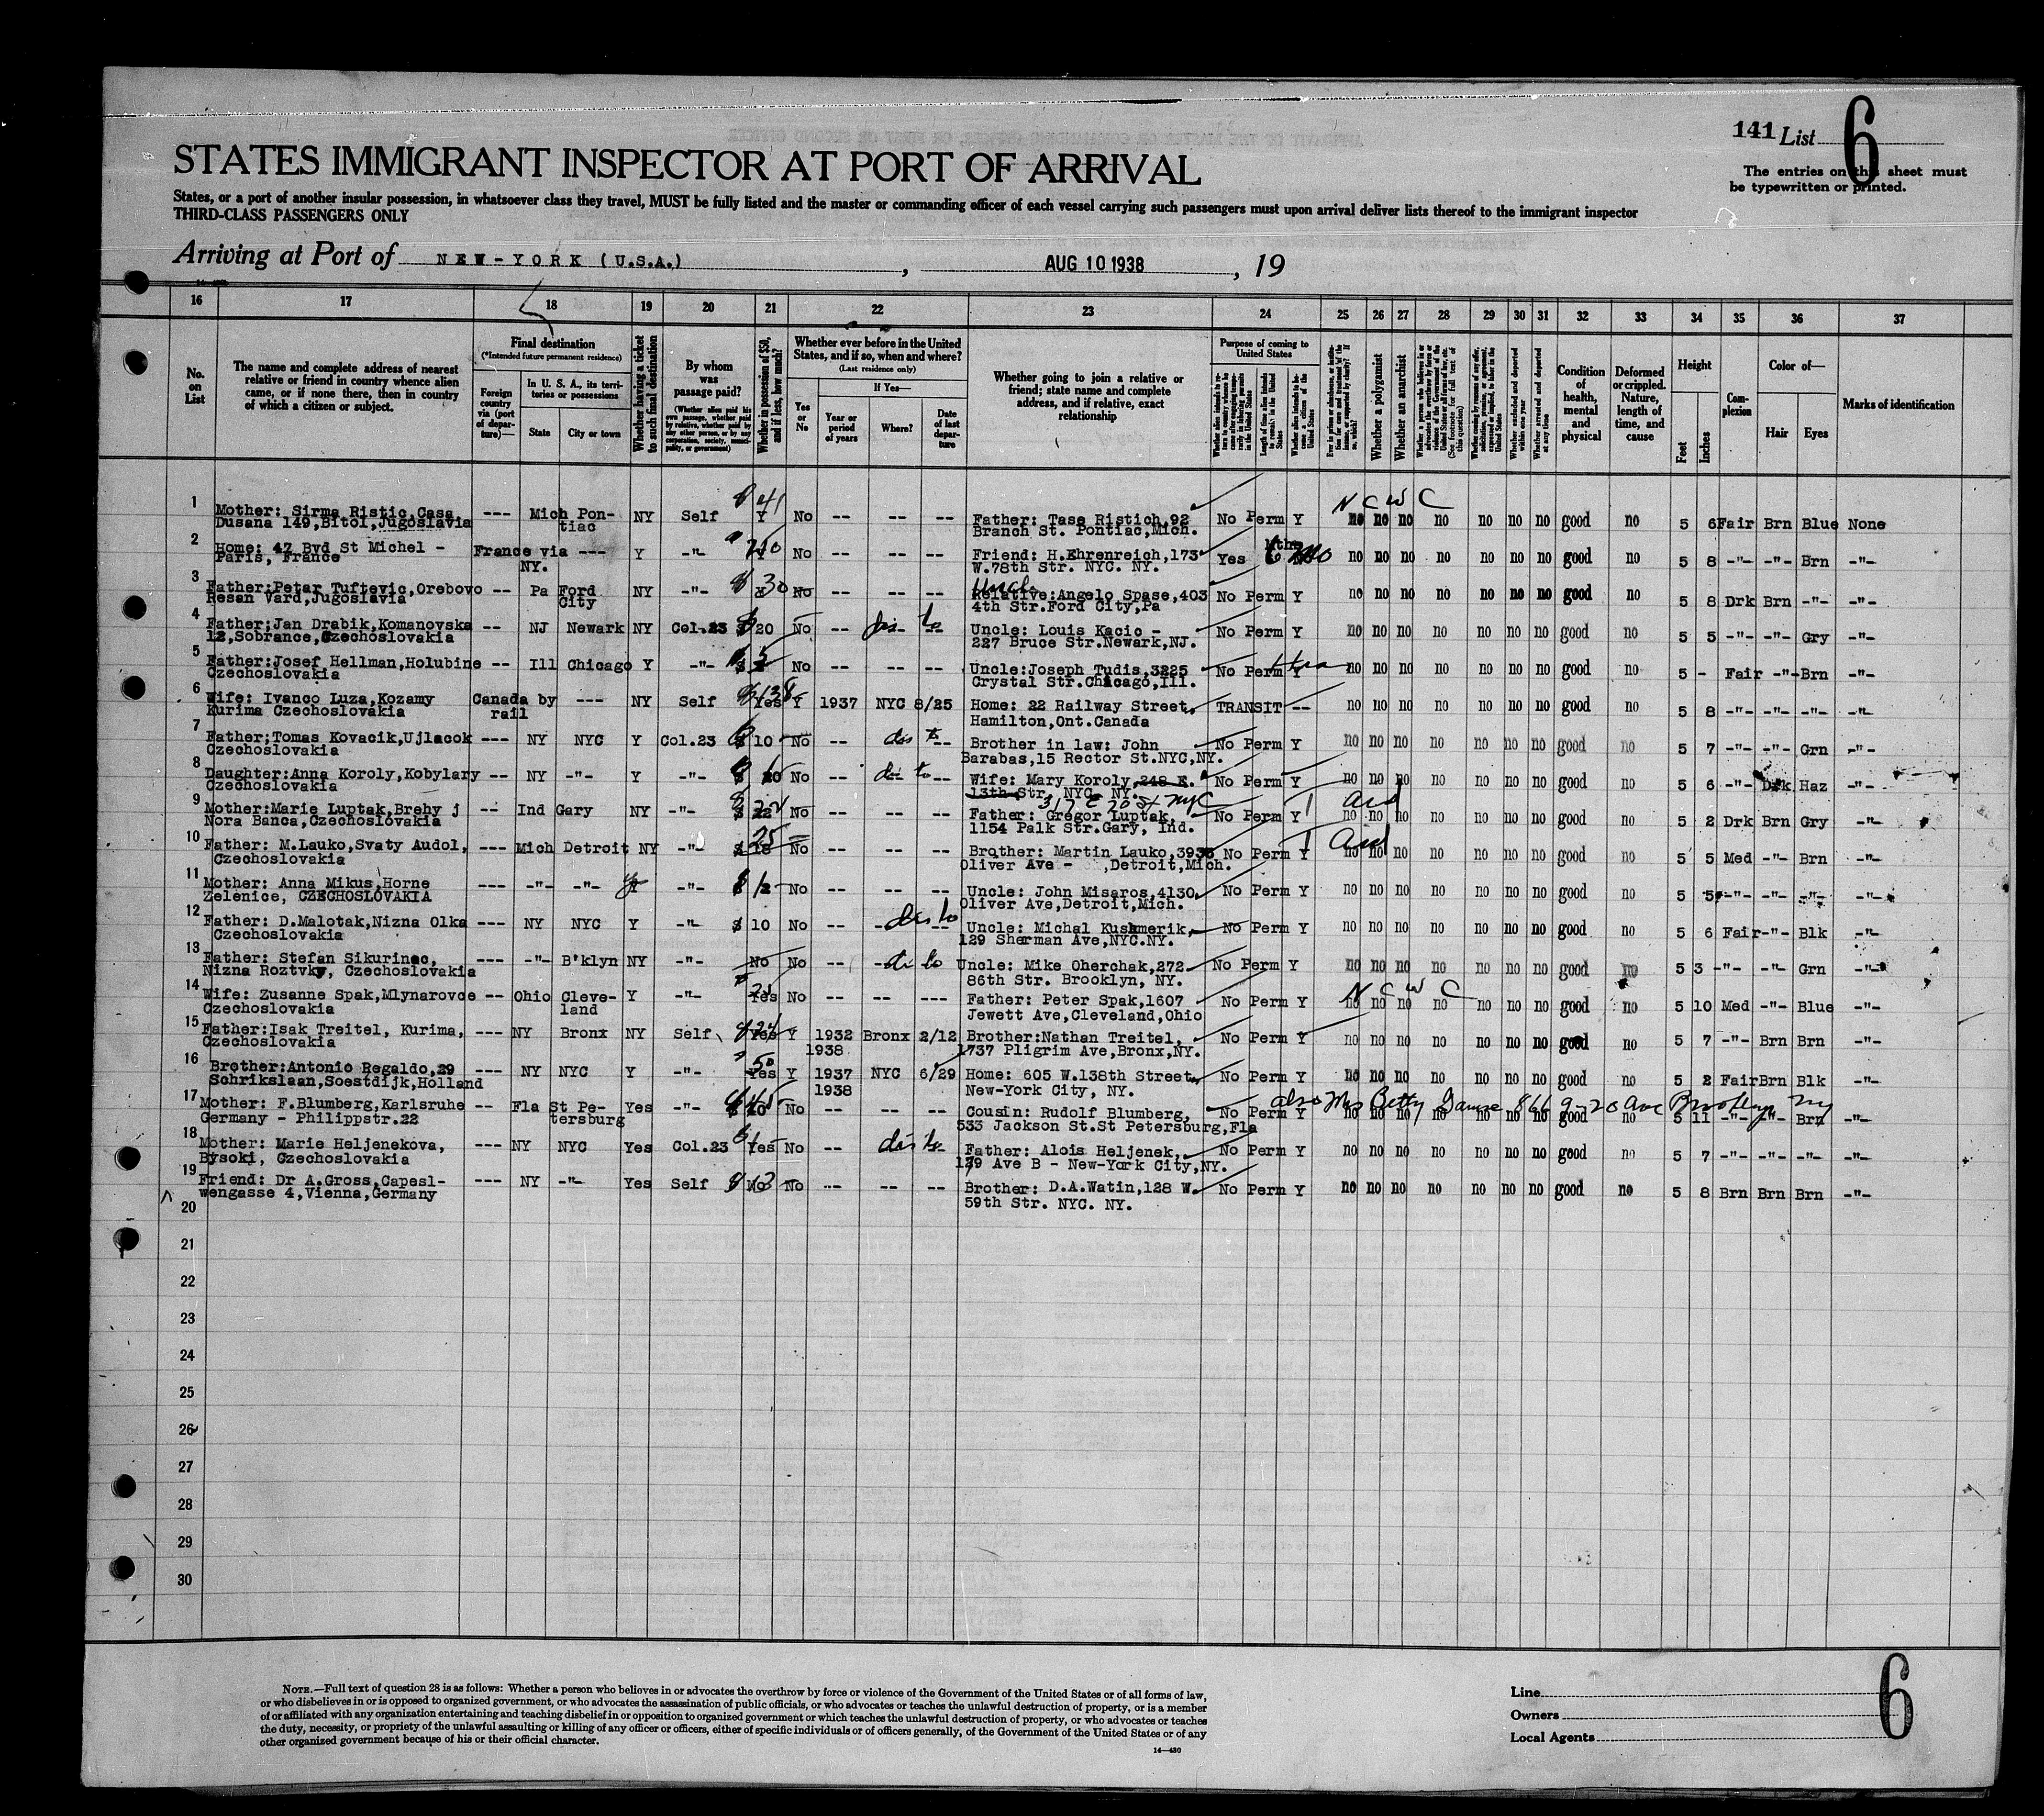 141 List 6
STATES IMMIGRANT INSPECTOR AT PORT OF ARRIVAL
The entries on this sheet must
be typewritten or printed.
States, or a port of another insular possession, in whatsoever class they travel, MUST be fully listed and the master or commanding officer of each vessel carrying such passengers must upon arrival deliver lists thereof to the immigrant inspector
THIRD-CLASS PASSENGERS ONLY
Arriving at Port of NEW-YORK (U.S.A.), AUG 10 1938, 19
16 17 18 19 20 21 22 23 24 25 26 27 28 29 30 31 32 33 34 35 36 37
No. on List
The name and complete address of nearest relative or friend in country whence alien came, or if none there, then in country of which a citizen or subject.
Final destination
(*Intended future permanent residence)
Foreign country via (port of departure)—
In U. S. A., its territories or possessions
State
City or town
Whether having a ticket to such final destination
By whom was passage paid?
Whether in possession of $50, and if less, how much?
Whether ever before in the United States, and if so, when and where?
(Last residence only)
Yes or No
If Yes—
Year or period of years
Where?
Date of last departure
Whether going to join a relative or friend; state name and complete address, and if relative, exact relationship
Purpose of coming to United States
Whether a polygamist
Whether an anarchist
Condition of health, mental and physical
Deformed or crippled. Nature, length of time, and cause
Height
Feet
Inches
Complexion
Color of—
Hair
Eyes
Marks of identification
N C W C
1 Mother: Sirma Ristic, Casa --- Mich Pon- NY Self Y 41 No -- -- -- Father: Tase Ristich, 92 No Perm Y no no no no no no no good no 5 6 Fair Brn Blue None
Dusana 149, Bitol, Jugoslavia tiac Branch St. Pontiac, Mich.
2 Home: 47 Bvd St Michel - France via --- Y -"- No -- -- -- Friend: H.Ehrenreich, 173 Yes no no no no no no no good no 5 8 -"- -"- Brn -"-
Paris, France NY. W.78th Str. NYC. NY.
3 Father: Petar Tuftevic, Orebovo -- Pa Ford NY -"- 30 No -- -- -- Uncle Relative: Angelo Spase, 403 No Perm Y no no no no no no no good no 5 8 Drk Brn -"- -"-
Resan Vard, Jugoslavia City 4th Str. Ford City, Pa
4 Father; Jan Drabik, Komanovska -- NJ Newark NY Col.23 $ 20 No -- -- Uncle: Louis Kacic - No Perm Y no no no no no no no good no 5 5 -"- -"- Gry -"-
12, Sobrance, Czechoslovakia 227 Bruce Str. Newark, NJ.
5 Father: Josef Hellman, Holubine -- Ill Chicago Y -"- No -- -- -- Uncle: Joseph Tudis, 3225 No Perm Y no no no no no no no good no 5 - Fair -"- Brn -"-
Czechoslovakia Crystal Str. Chicago, Ill.
6 Wife: Ivanco Luza, Kozamy Canada by --- NY Self Yes Y 1937 NYC 8/25 Home: 22 Railway Street, TRANSIT -- no no no no no no no good no 5 8 -"- -"- -"- -"-
Kurima Czechoslovakia rail Hamilton, Ont. Canada
7 Father; Tomas Kovacik, Ujlacok --- NY NYC Y Col.23 $ 10 No -- Brother in law: John No Perm Y no no no no no no no good no 5 7 -"- -"- Grn -"-
Czechoslovakia Barabas, 15 Rector St. NYC, NY.
8 Daughter: Anna Koroly, Kobylary -- NY -"- Y -"- No -- Wife: Mary Koroly, 248 E. No Perm Y no no no no no no no good no 5 6 -"- Drk Haz -"-
Czechoslovakia 13th Str. NYC. NY.
317 E 70 St NYC
9 Mother: Marie Luptak, Brehy j -- Ind Gary NY -"- $ 22 No -- -- -- Father: Gregor Luptak, No Perm Y no no no no no no no good no 5 2 Drk Brn Gry -"-
Nora Banca, Czechoslovakia 1154 Palk Str. Gary, Ind.
10 Father: M.Lauko, Svaty Audol, --- Mich Detroit NY -"- 25 No -- -- -- Brother: Martin Lauko, 3935 No Perm Y no no no no no no no good no 5 5 Med -"- Brn -"-
Czechoslovakia Oliver Ave - , Detroit, Mich.
11 Mother: Anna Mikus, Horne --- -"- -"- -"- No -- -- -- Uncle: John Misaros, 4130 No Perm Y no no no no no no no good no 5 5 -"- -"- -"- -"-
Zelenice, CZECHOSLOVAKIA Oliver Ave, Detroit, Mich.
12 Father: D.Malotak, Nizna Olka --- NY NYC Y -"- $ 10 No -- Uncle: Michal Kushmerik, No Perm Y no no no no no no no good no 5 6 Fair -"- Blk -"-
Czechoslovakia 129 Sherman Ave, NYC. NY.
13 Father: Stefan Sikurinec, --- -"- B'klyn NY -"- No No -- Uncle: Mike Oherchak, 272 No Perm Y no no no no no no no good no 5 3 -"- -"- Grn -"-
Nizna Roztvky, Czechoslovakia 86th Str. Brooklyn, NY.
N C W C
14 Wife: Zusanne Spak, Mlynarovce -- Ohio Cleve- Y -"- Yes No -- -- --- Father: Peter Spak, 1607 No Perm Y no no no no no no no good no 5 10 Med -"- Blue -"-
Czechoslovakia land Jewett Ave, Cleveland, Ohio
15 Father: Isak Treitel, Kurima, --- NY Bronx NY Self Yes Y 1932 Bronx 2/12 Brother: Nathan Treitel, No Perm Y no no no no no no no good no 5 7 -"- Brn Brn -"-
Czechoslovakia 1938 1737 Pligrim Ave, Bronx, NY.
16 Brother: Antonio Regaldo, 29 --- NY NYC Y -"- 50 Yes Y 1937 NYC 6/29 Home: 605 W.138th Street, No Perm Y no no no no no no no good no 5 2 Fair Brn Blk -"-
Schrikslaan, Soestdijk, Holland 1938 New-York City, NY.
17 Mother: F.Blumberg, Karlsruhe -- Fla St Pe- Yes -"- No -- -- -- Cousin: Rudolf Blumberg, No Perm Y no no no no no no no good no 5 11 -"- -"- Brn -"-
Germany - Philippstr.22 tersburg 533 Jackson St. St Petersburg, Fla
also Mrs Betty 20 Ave Brooklyn NY
18 Mother: Marie Heljenekova, --- NY NYC Yes Col.23 Yes No -- Father: Alois Heljenek, No Perm Y no no no no no no no good no 5 7 -"- -"- -"- -"-
Bysoki, Czechoslovakia 179 Ave B - New-York City, NY.
19 Friend: Dr A.Gross, Capesl- --- NY -"- Yes Self No -- -- -- Brother: D.A.Watin, 128 W. No Perm Y no no no no no no no good no 5 8 Brn Brn Brn -"-
wengasse 4, Vienna, Germany 59th Str. NYC. NY.
20
21
22
23
24
25
26
27
28
29
30
NOTE.—Full text of question 28 is as follows: Whether a person who believes in or advocates the overthrow by force or violence of the Government of the United States or of all forms of law,
or who disbelieves in or is opposed to organized government, or who advocates the assassination of public officials, or who advocates or teaches the unlawful destruction of property, or is a member
of or affiliated with any organization entertaining and teaching disbelief in or opposition to organized government or which teaches the unlawful destruction of property, or who advocates or teaches
the duty, necessity, or propriety of the unlawful assaulting or killing of any officer or officers, either of specific individuals or of officers generally, of the Government of the United States or of any
other organized government because of his or their official character.
14—430
Line
Owners
Local Agents
6